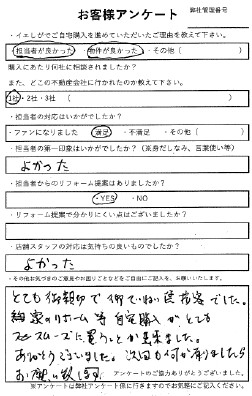 お客様アンケート 弊社管理番号
・イエしがでご自宅購入を進めていただいたご理由を教えて下さい。
担当者が良かった ・ 物件が良かった ・その他（ ）
購入にあたり何社に相談されましたか？
また、どこの不動産会社に行かれたのか教えて下さい。
1社・2社・3社（ ）
・担当者の対応はいかがでしたか？
・ファンになりました ・満足 ・不満足 ・その他（ ）
・担当者の第一印象はいかがでしたか？（※身だしなみ、言葉使い等）
よかった
・担当者からのリフォーム提案はありましたか？
・YES ・NO
・リフォーム提案で分かりにくい点はございましたか？
・店舗スタッフの対応は気持ちの良いものでしたか？
よかった
・その他お気づきのご意見やお困りごとなどをご自由にご記入を、お願いいたします。
とても御親切で 丁寧な 接客でした。
自宅購入が とても
スムーズに 買うことが出来ました。
ありがとうございました。 次回も何かありましたら
お願い致します アンケートのご協力ありがとうございました。
※アンケートは弊社アンケート係に行きますのでお気軽にご記入ください。